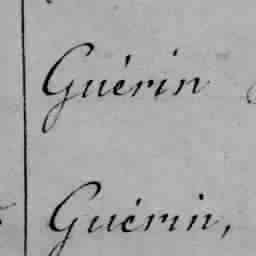 Guérin
Guérin,